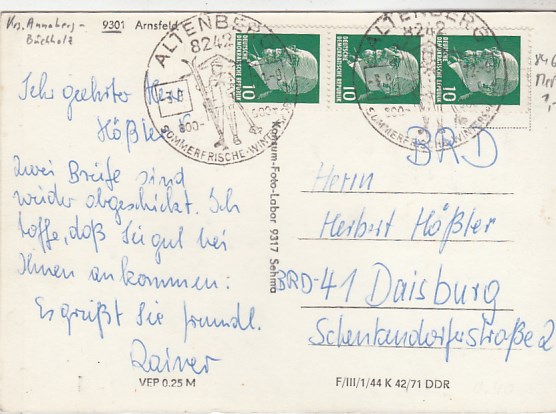 Krs. Annaberg-
Buchholz
9301 Arnsfeld
ALTENBERG
8242
800-
SOMMERFRISCHE-WINTER
DEUTSCHE
DEMOKRATISCHE REPUBLIK
10
DEUTSCHE
DEMOKRATISCHE REPUBLIK
10
DEUTSCHE
DEMOKRATISCHE REPUBLIK
10
ALTENBERG
8242
800-
SOMMERFRISCHE-WINTER
Sehr geehrter Herr
Hößler
zwei Briefe sind
wieder abgeschickt. Ich
hoffe, daß Sie gut bei
Ihnen ankommen.
Es grüßt Sie freundl.
Rainer
Konsum-Foto-Labor 9317 Sehma
BRD
Herrn
Herbert Hößler
BRD-41 Duisburg
Schenkendorfstraße 2
VEP 0.25 M
F/III/1/44 K 42/71 DDR